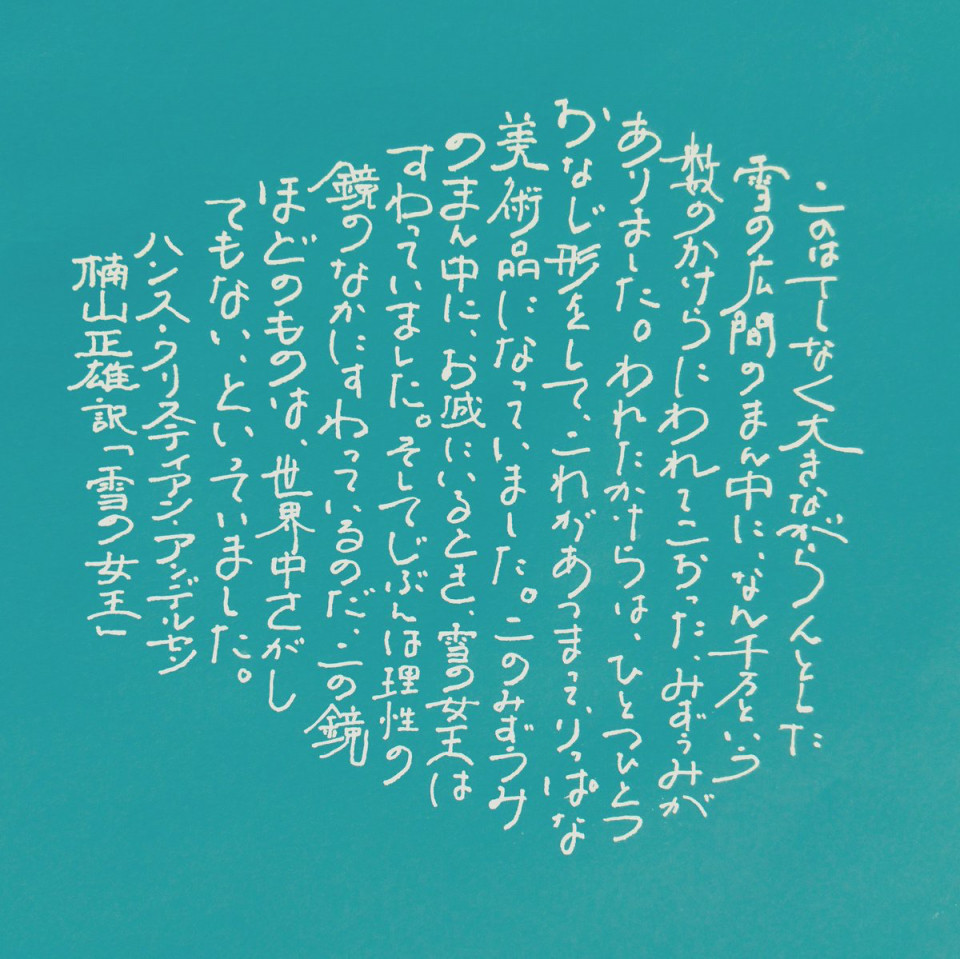 このはてしなく大きながらんとした
雪の広間のまん中に、なん千万という
数のかけらにわれてこおった、みずうみが
ありました。われたかけらは、ひとつひとつ
おなじ形をして、これがあつまって、りっぱな
美術品になっていました。このみずうみ
のまん中に、お城にいるとき、雪の女王は
すわっていました。そしてじぶんは理性の
鏡のなかにすわっているのだ、この鏡
ほどのものは、世界中さがし
てもない、といっていました。
ハンス・クリスティアン・アンデルセン
楠山正雄訳「雪の女王」